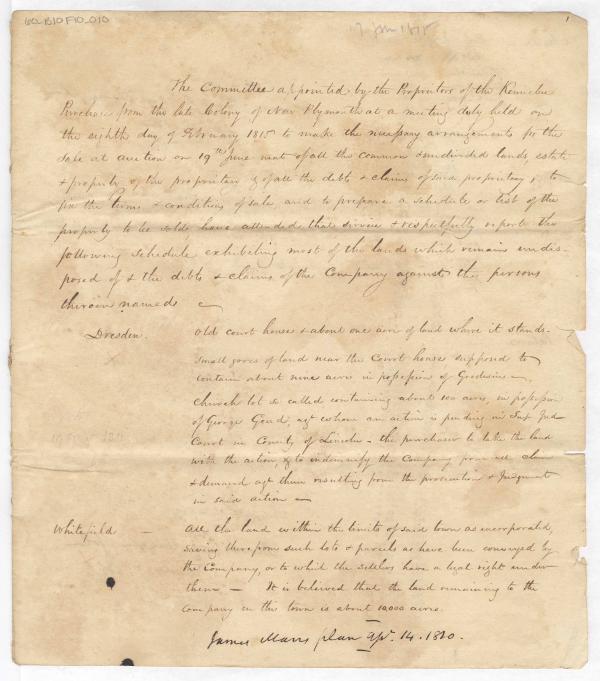 60_B10F10_010
19 Jan 1815
1
The Committee appointed by the Proprietors of the Kennebec
Purchase from the late Colony of New Plymouth at a meeting duly held on
the eighth day of February 1815 to make the necessary arrangements for the
sale at auction on 19th June next of all the common & undivided lands, estate
& property of the proprietors & of all the debts & claims of said proprietors, & to
fix the terms & conditions of sale, and to prepare a schedule or list of the
property to be sold, have attended that service & respectfully report the
following schedule exhibiting most of the lands which remain undis-
posed of & the debts & claims of the Company against the persons
therein named
Dresden.
Old court house & about one acre of land where it stands.
Small gores of land near the Court house supposed to
contain about nine acres in possession of Goodwin
Church lot so called containing about 100 acres, in possession
of George Goud, agt whom an action is pending in Sup. Jud.
Court in County of Lincoln - the purchaser to take the land
with the action, & to indemnify the Company from all claim
& demand agt them resulting from the prosecution & Judgment
in said action
Whitefield -
All the land within the limits of said town as incorporated,
saving therefrom such lots & parcels as have been conveyed by
the Company, or to which the settlers have a legal right under
them - It is believed that the land remaining to the
Company in this town is about 10000 acres.
James Marrs plan Apr. 14. 1810.